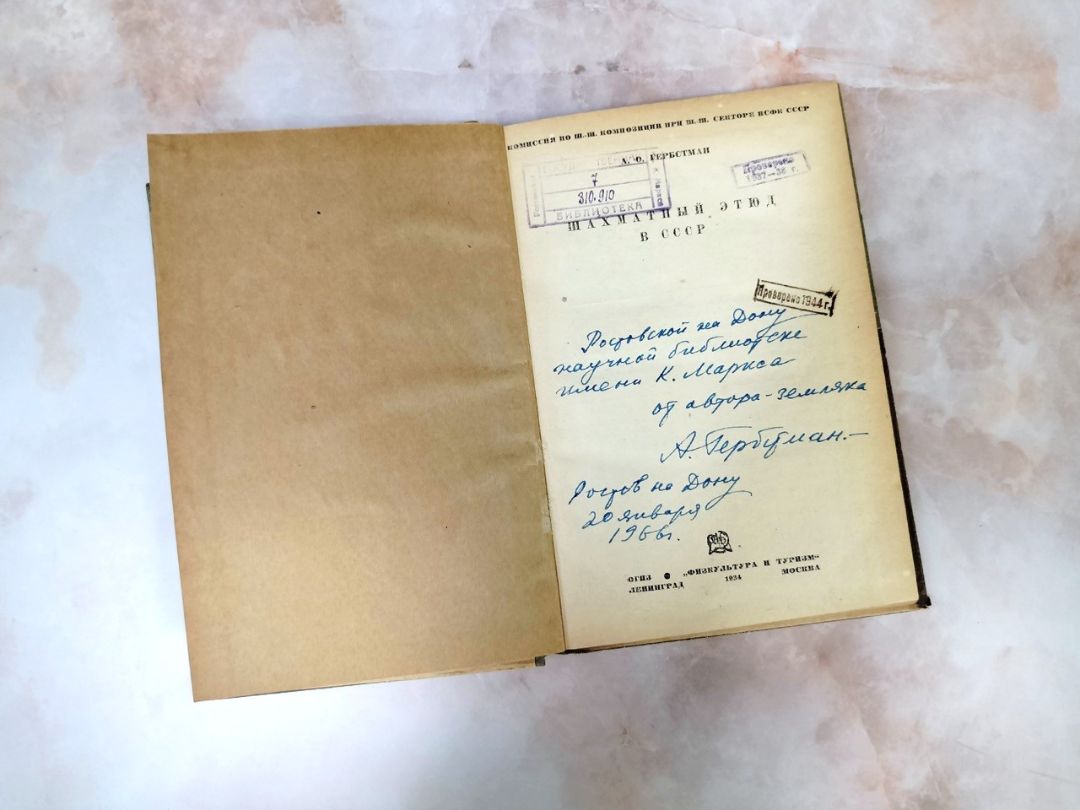 КОМИССИЯ ПО Ш.-Ш. КОМПОЗИЦИИ ПРИ Ш.-Ш. СЕКТОРЕ ВСФК СССР
А. О. ГЕРБСТМАН
7
310.910
БИБЛИОТЕКА
К. Маркса
Проверено
1937—38 г.
ШАХМАТНЫЙ ЭТЮД
В СССР
Проверено 1944 г.
Ростовской на Дону
научной библиотеке
имени К. Маркса
от автора-земляка
А. Гербстман.—
Ростов на Дону
20 января
1966г.
ОГИЗ „ФИЗКУЛЬТУРА И ТУРИЗМ“
ЛЕНИНГРАД 1934 МОСКВА